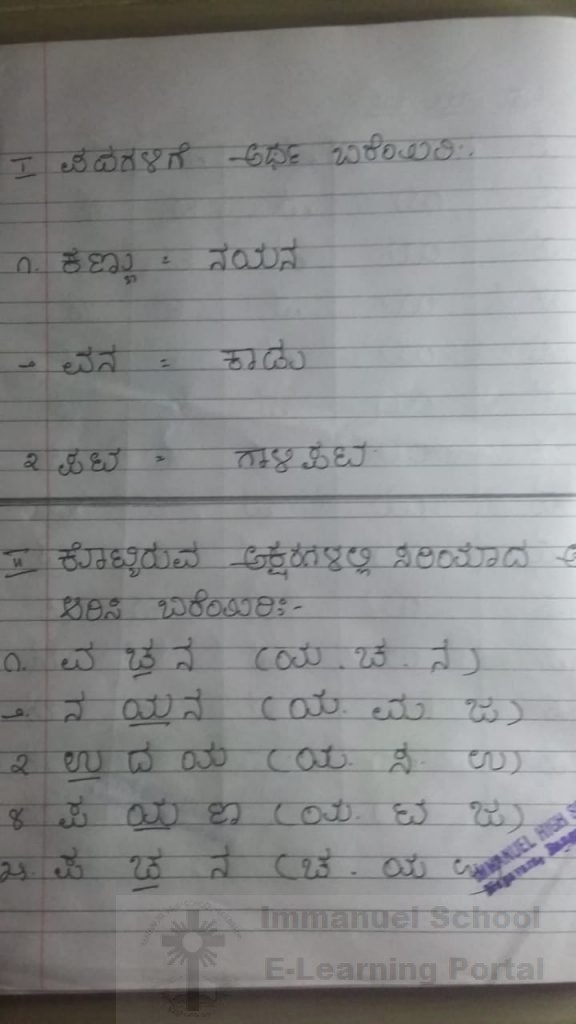 I ಪದಗಳಿಗೆ ಅರ್ಥ ಬರೆಯಿರಿ:
೧. ಕಣ್ಣು = ನಯನ
೨ ವನ = ಕಾಡು
೩ ಪಟ = ಗಾಳಿಪಟ
II ಕೊಟ್ಟಿರುವ ಅಕ್ಷರಗಳಲ್ಲಿ ಸರಿಯಾದ
ಆರಿಸಿ ಬರೆಯಿರಿ:-
೧. ವ ಚ ನ (ಯ. ಚ. ನ)
೨. ನ ಯ ನ (ಯ. ಮ ಜ)
೩ ಉ ದ ಯ (ಯ. ಸ. ಉ)
೪ ಪ ಯ ಣ (ಯ. ಟ ಜ)
೫. ಪ ಚ ನ (ಚ. ಯ
IMMANUEL HIGH
Immanuel School
E-Learning Portal